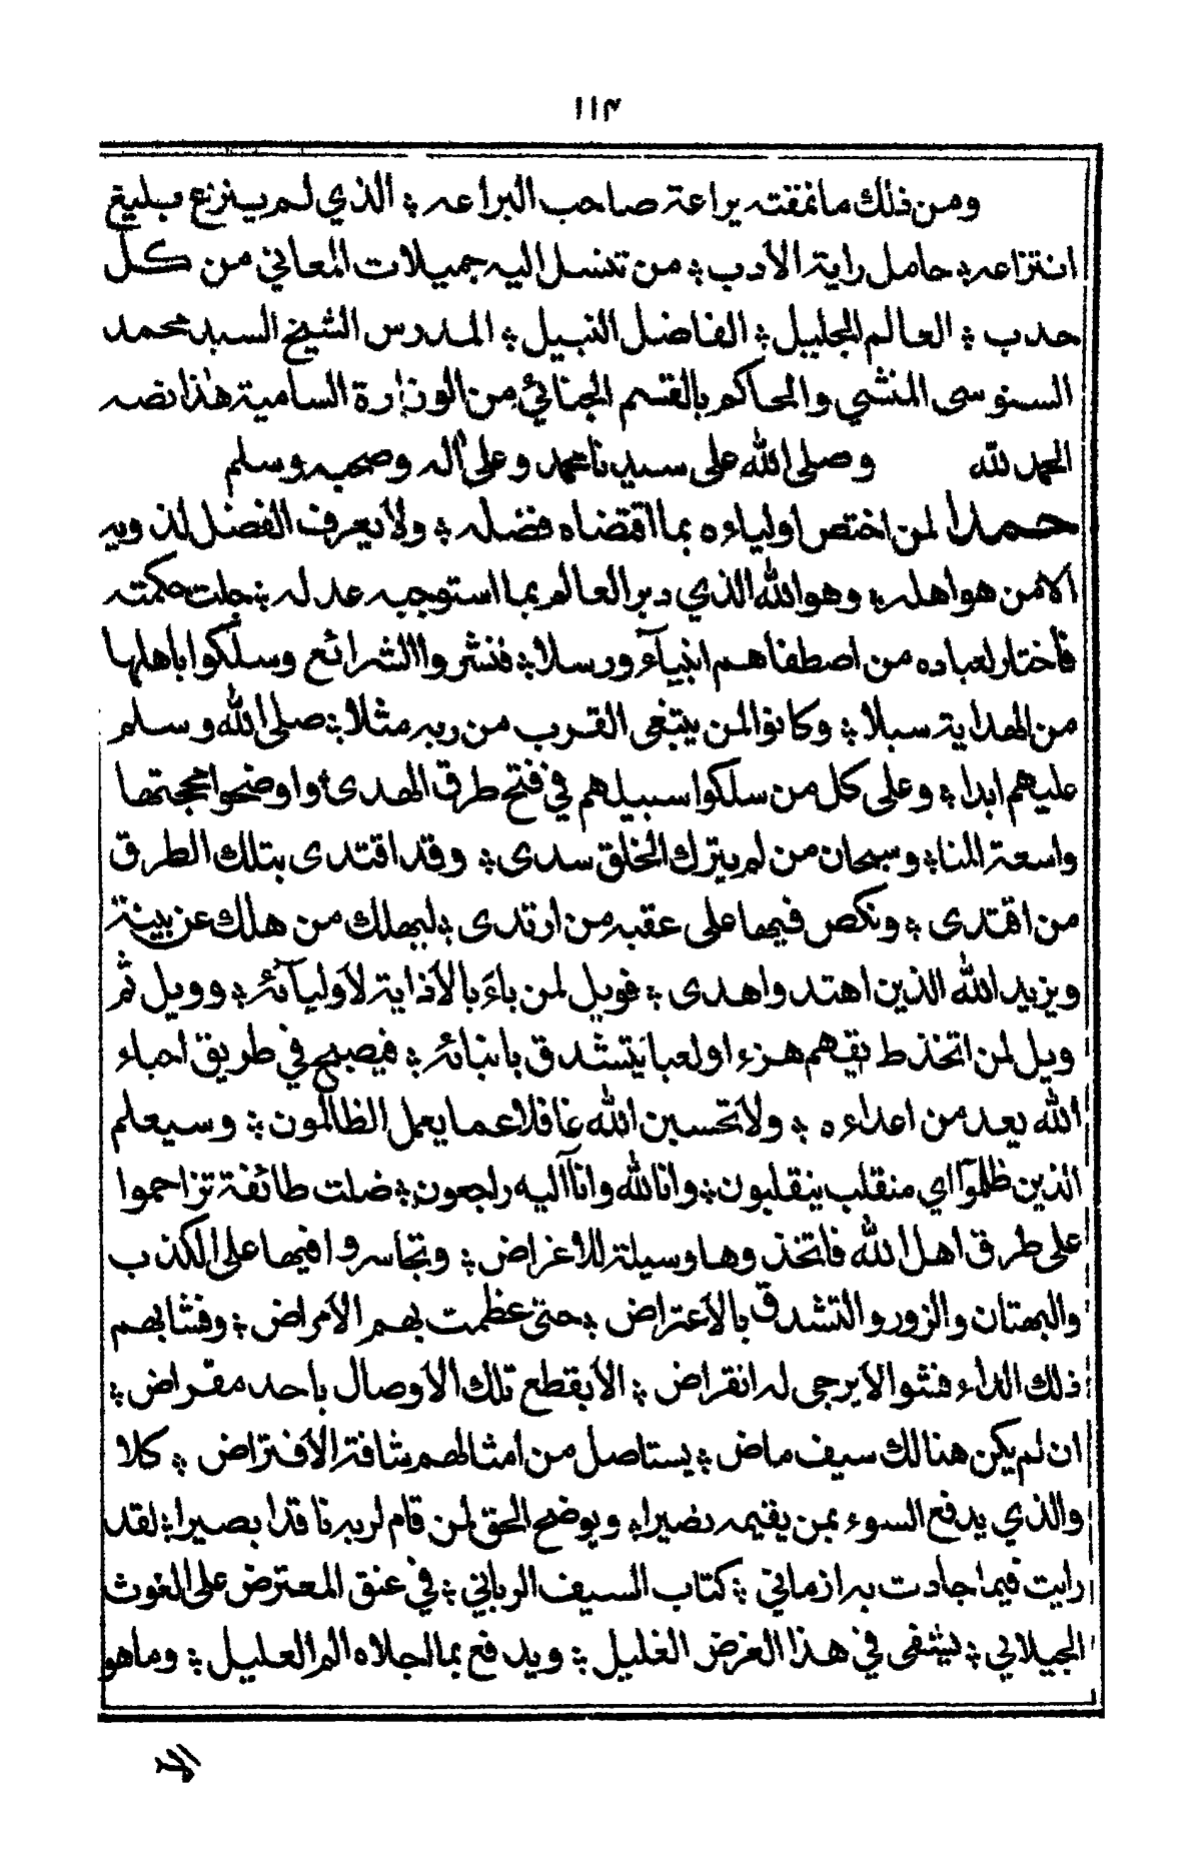 ١١٣
ومن ذلك مانمقته يراعة صاحب البراعه ؛ الذي لم ينزع بليغ
انتزاعه ؛ حامل راية الأدب ؛ من تنسل اليه جميلات المعاني من كل
حدب ؛ العالم الجليل ؛ الفاضل النبيل ؛ المدرس الشيخ السيد محمد
السنوسي المنشي والمحاكم بالقسم الجنائي من الوزارة السامية هٰذا نصه
الحمد لله وصلى الله على سيدنا محمد وعلى آله وصحبه وسلم
حمدا لمن اختص اولياءه بما اقتضاه فضله ؛ ولا يعرف الفضل لذويه
الا من هو اهله ؛ وهو الله الذي دبر العالم بما استوجبه عدله ؛ جلت حكمته
فأختار لعباده من اصطفاهم انبيآء ورسلا ؛ فنشروا الشرائع وسلكوا بأهلها
من الهداية سبلا ؛ وكانوا لمن يبتغي القرب من ربه مثلا ؛ صلى الله وسلم
عليهم ابدا ؛ وعلى كل من سلكوا سبيلهم في فتح طرق الهدى ؛ واوضحوا محجتها
واسعة المنا ؛ وسبحان من لم يترك الخلق سدى ؛ وقد اقتدى بتلك الطرق
من اقتدى ؛ ونكص فيها على عقبه من ارتدى ؛ ليهلك من هلك عن بينة
ويزيد الله الذين اهتدوا هدى ؛ فويل لمن باءَ بالأذاية لأوليآئه ؛ وويل ثم
ويل لمن اتخذ طريقهم هزء او لعبا يتشدق بانبائه ؛ فيصبح في طريق احباء
الله يعد من اعداءه ؛ ولا تحسبن الله غافلا عما يعمل الظالمون ؛ وسيعلم
الذين ظلموآ اي منقلب ينقلبون ؛ وانا لله وانآ اليه راجعون ؛ ضلت طائفة تزاحموا
على طرق اهل الله فاتخذوها وسيلة للاغراض ؛ وتجاسروا فيها على الكذب
والبهتان والزور والتشدق بالأعتراض ؛ حتى عظمت بهم الأمراض ؛ وفشا بهم
ذلك الداء فشوا لا يرجى له انقراض ؛ الا بقطع تلك الأوصال باحد مقراض ؛
ان لم يكن هنالك سيف ماض ؛ يستاصل من امثالهم شافة الأفتراض ؛ كلا
والذي يدفع السوء بمن يقيمه نصيرا ؛ ويوضح الحق لمن قام لربه ناقدا بصيرا ؛ لقد
رايت فيما جادت به ازماني ؛ كتاب السيف الرباني ؛ في عنق المعترض على الغوث
الجيلاني ؛ يشفى في هذا الغرض الغليل ؛ ويدفع بما اجلاه الم العليل ؛ وماهو
الا